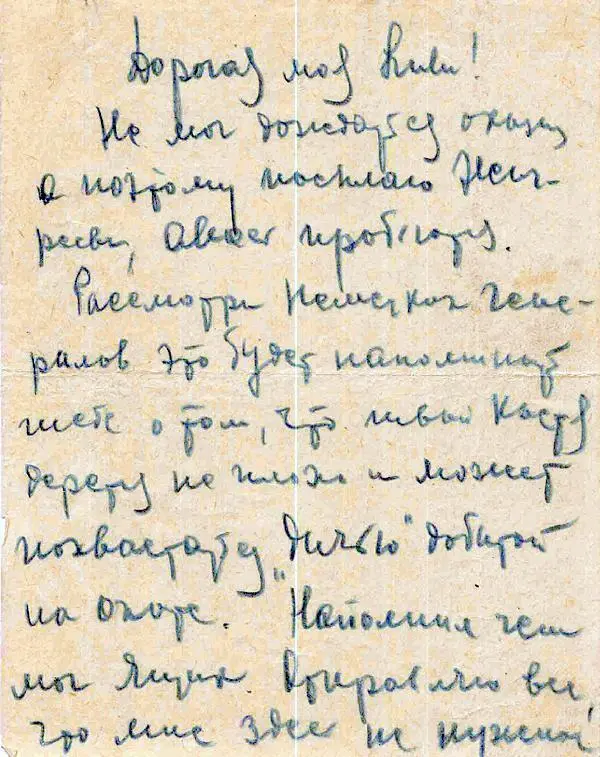 Дорогая моя Киви!
Не мог дождаться оказии
а поэтому посылаю
авось пробьются.
Рассмотри Немецких Гене-
ралов это будет напоминать
тебе о том, что твой Костя
дерется не плохо и может
похвастаться „дичью" добытой
на охоте. Наполнил чем
мог ящик. Отправляю все,
что мне здесь не нужно